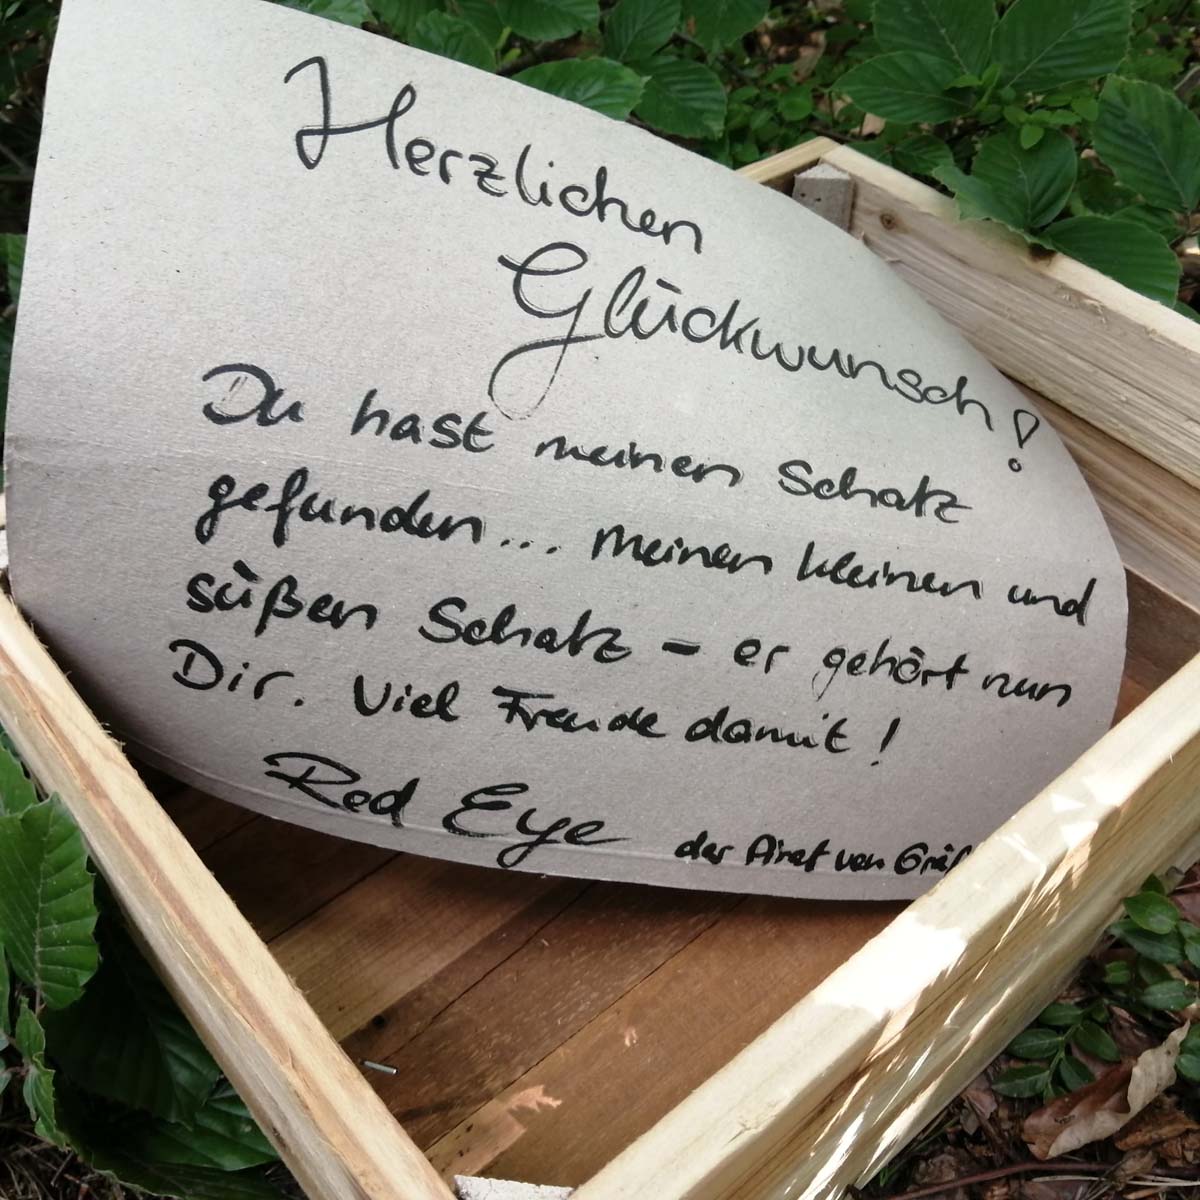 Herzlichen
Glückwunsch!
Du hast meinen Schatz
gefunden... meinen kleinen und
süßen Schatz – er gehört nun
Dir. Viel Freude damit!
Red Eye der Pirat von